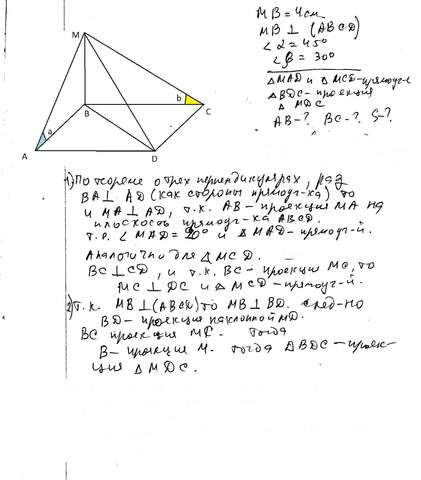 MB = 4см
MB ⊥ (ABCD)
∠α = 45°
∠β = 30°
△MAD и △MCD - прямоуг-е
△BDC - проекция
△MDC
AB - ? BC - ? S - ?
M
B
b
C
a
A
D
1) По теореме о трех перпендикулярах, раз
BA ⊥ AD (как стороны прямоуг-ка) то
и MA ⊥ AD, т.к. AB - проекция MA на
плоскость прямоуг-ка ABCD.
т.е. ∠MAD = 90° и △MAD - прямоуг-й.
Аналогично для △MCD.
BC ⊥ CD, и т.к. BC - проекция MC, то
MC ⊥ DC и △MCD - прямоуг-й.
2) Т.к. MB ⊥ (ABCD) то MB ⊥ BD. След-но
BD - проекция наклонной MD.
BC проекция MC. Тогда
B - проекция M. Тогда △BDC - проек-
ция △MDC.